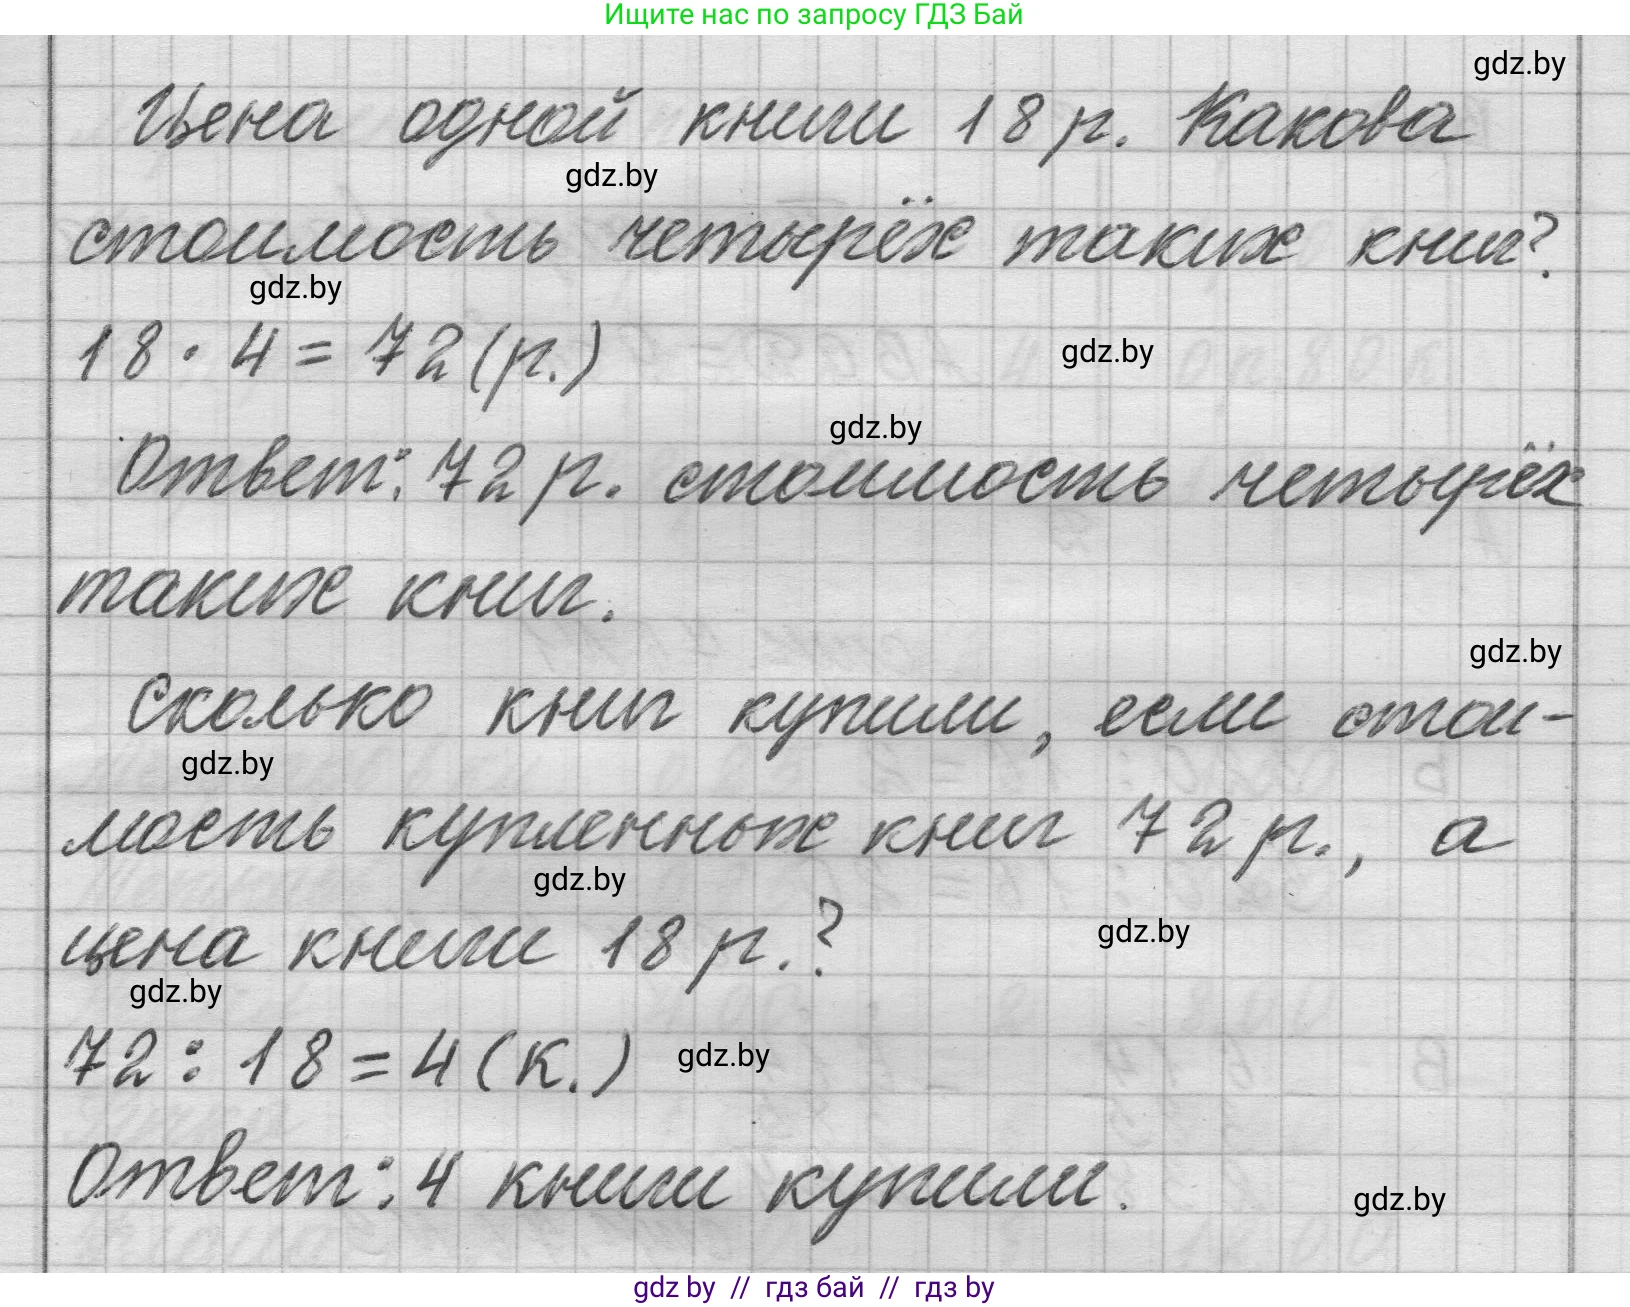 Ищите нас по запросу ГДЗ Бай
gdz.by
Цена одной книги 18 р. Какова
gdz.by
стоимость четырёх таких книг?
gdz.by
18 · 4 = 72 (р.)
gdz.by
gdz.by
Ответ: 72 р. стоимость четырёх
таких книг.
gdz.by
Сколько книг купили, если стои-
gdz.by
мость купленных книг 72 р., а
gdz.by
цена книги 18 р.?
gdz.by
gdz.by
72 : 18 = 4 (к.)
gdz.by
Ответ: 4 книги купили.
gdz.by
gdz by // гдз бай // гдз by